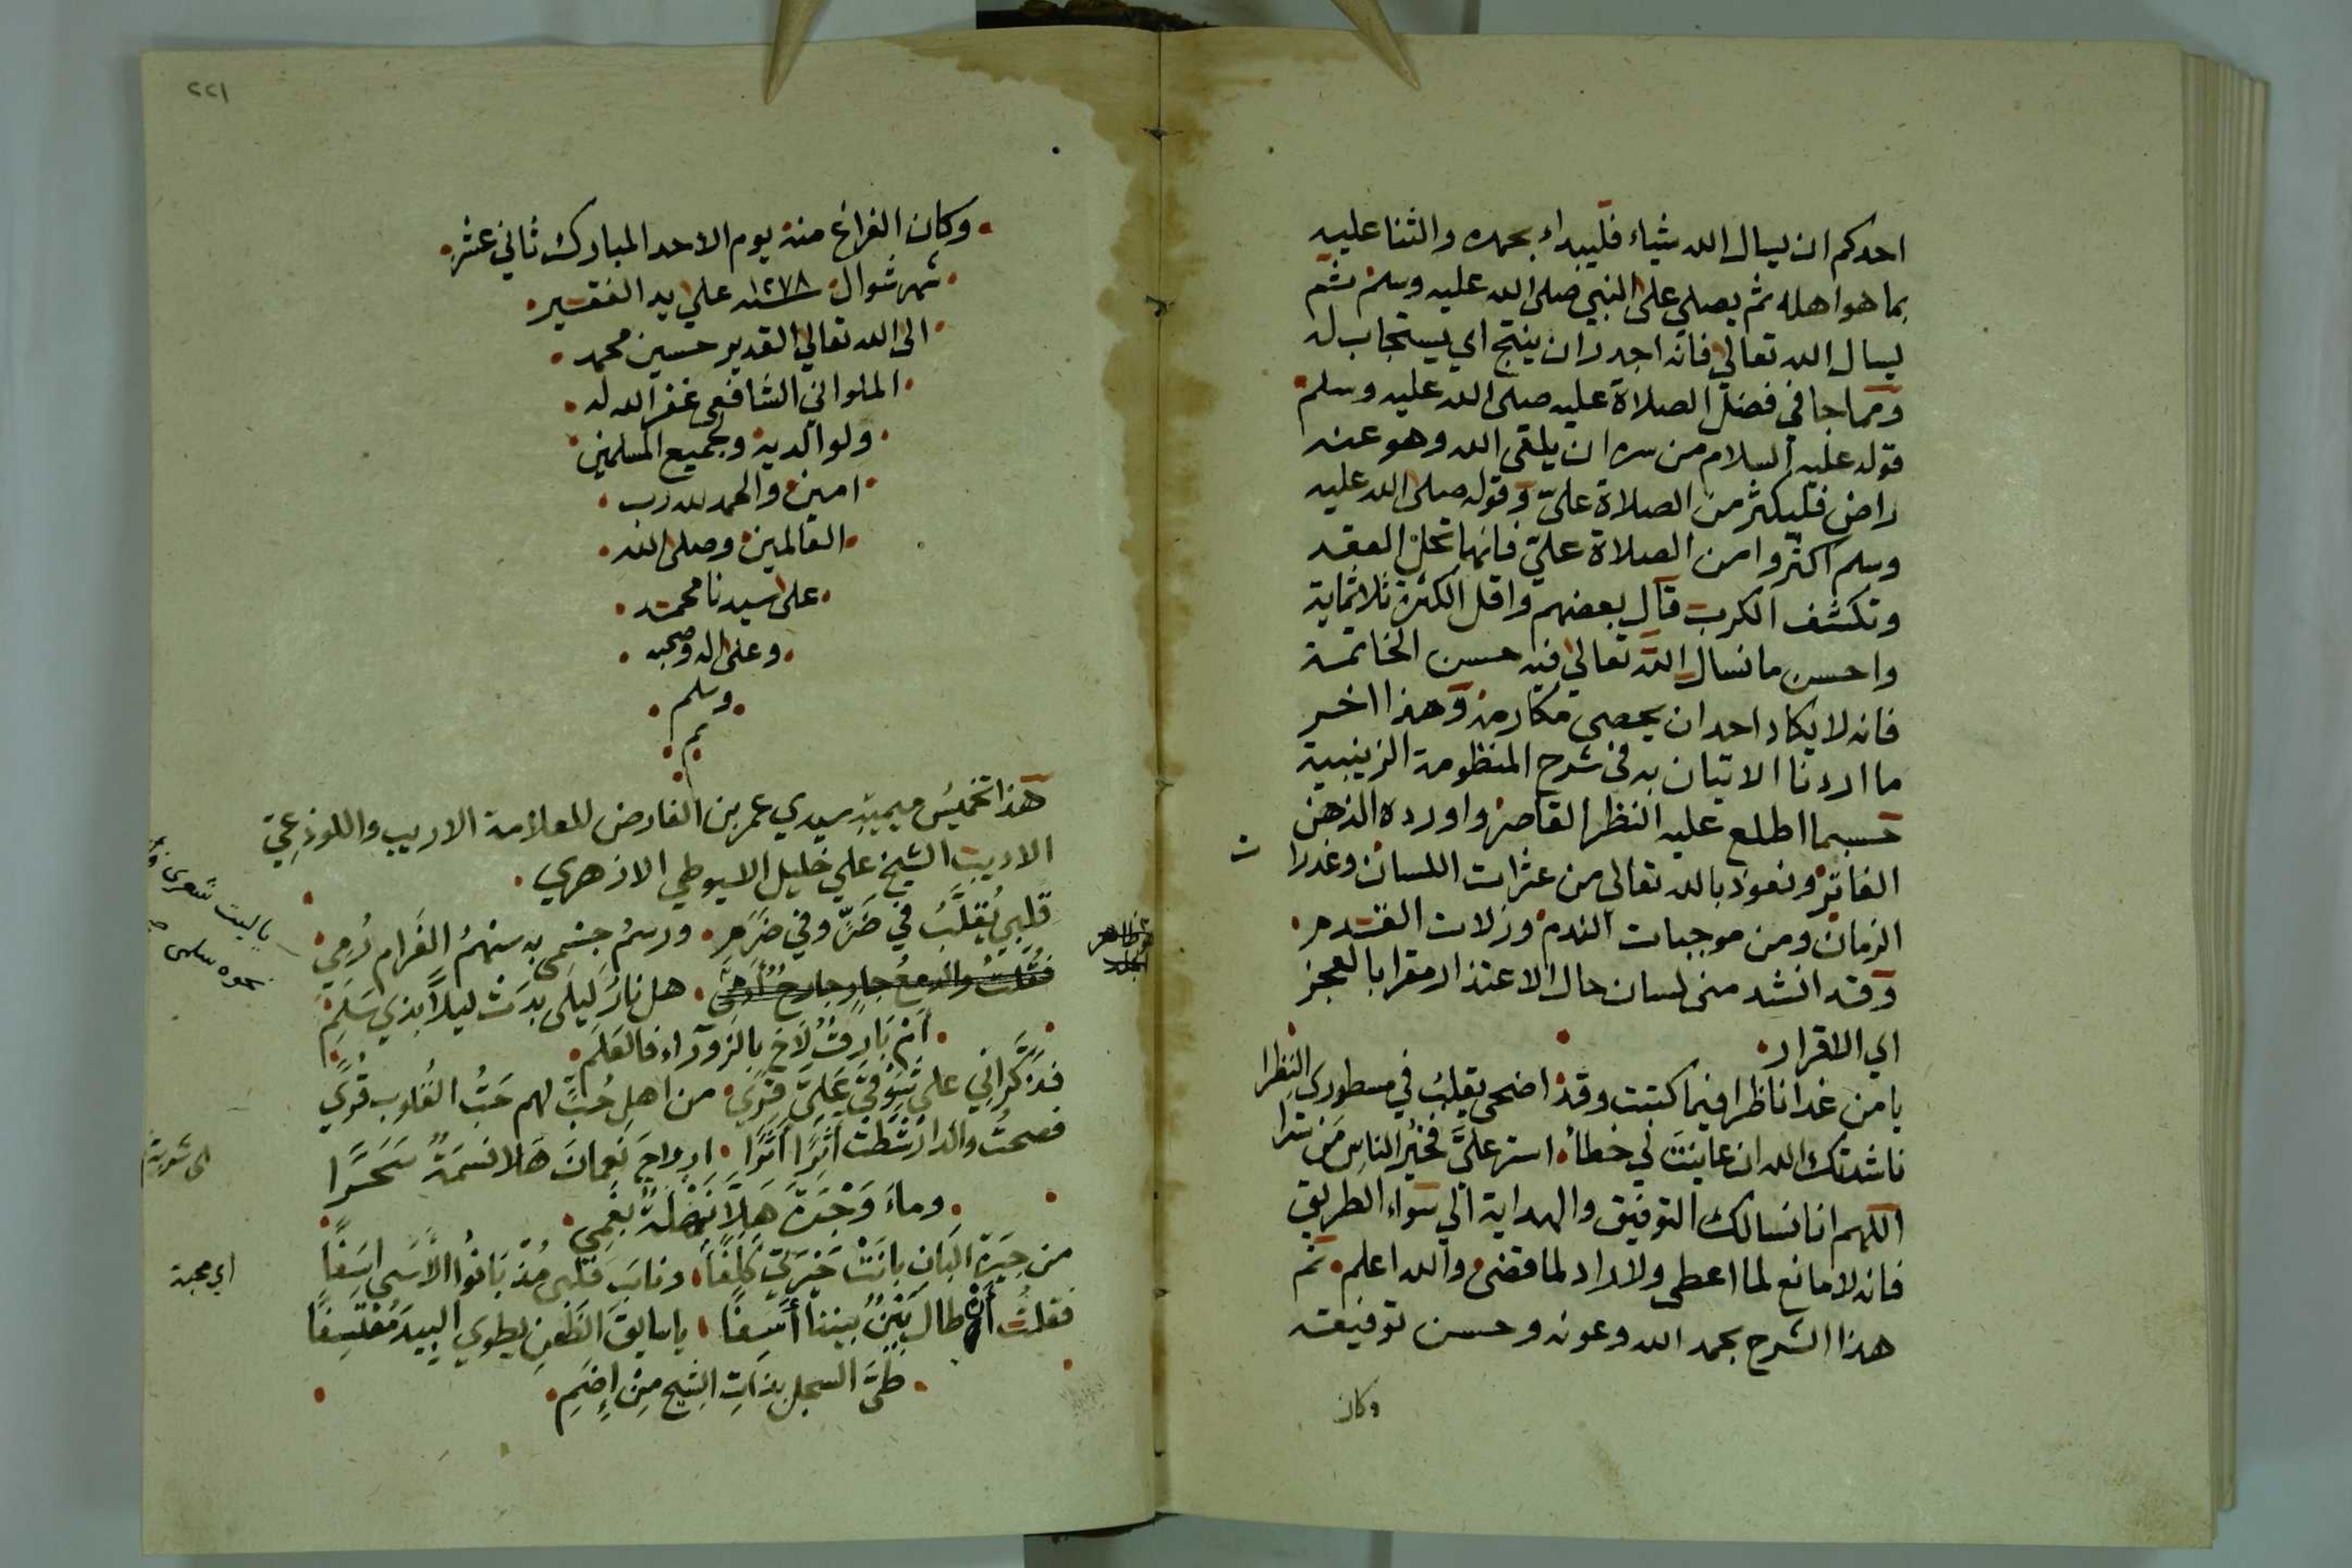 احدكم ان يسال الله شياء فليبداء بحمده والثنا عليه
بما هو اهله ثم يصلي على النبي صلى الله عليه وسلم ثم
ليسال الله تعالي فانه اجدر ان ينجح اي يستجاب له
ومما جا في فضل الصلاة عليه صلى الله عليه وسلم
قوله عليه السلام من سره ان يلقى الله وهو عنه
راض فليكثر من الصلاة عليّ وقوله صلى الله عليه
وسلم اكثروا من الصلاة عليّ فانها تحل العقد
وتكشف الكرب قال بعضهم واقل الكثرة ثلاثماية
واحسن ما نسال الله تعالي فيه حسن الخاتمة
فانه لا يكاد احد ان يحصي مكارمه وهذا اخر
ما اردنا الاتيان به في شرح المنظومة الزينبية
حسبما اطلع عليه النظر القاصر واورده الذهن
الفاتر ونعوذ بالله تعالى من عثرات اللسان وغدرات
الزمان ومن موجبات الندم وزلات القدم
وقد انشد مني لسان حال الاعتذار مقرا بالعجز
اي الاقرار
يا من غدا ناظرا فيما كتبت وقد اضحى يقلب في مسطوري النظرا
ناشدتك الله ان عاينت لي خطأ استر عليّ فخير الناس من سترا
اللهم انا نسالك التوفيق والهداية الي سواء الطريق
فانه لا مانع لما اعطى ولا راد لما قضى والله اعلم تم
هذا الشرح بحمد الله وعونه وحسن توفيقه
وكان
٢٢١
وكان الفراغ منه يوم الاحد المبارك ثاني عشر
شهر شوال سنة ١٢٧٨ علي يد الفقير
الى الله تعالي القدير حسين محمد
الملواني الشافعي غفر الله له
ولوالديه ولجميع المسلمين
امين والحمد لله رب
العالمين وصلى الله
على سيدنا محمد
وعلى اله وصحبه
وسلم
تم
هذا تخميس ميمية سيدي عمر بن الفارض للعلامة الاريب واللوذعي
الاديب الشيخ علي خليل الاسيوطي الازهري
قلبي يُقلَّبُ في ضرٍّ وفي ضَرَمِ ورسمُ جسمي به سهمُ الغرام رُمِي
فقلتُ والدمعُ جارٍ هل نارُ ليلَى بدَتْ ليلاً بذي سَلَمِ
أمْ بَارِقٌ لَاحَ بالزوراء فالعَلَمِ
فذكراني على شوقي عَلَيَّ قوًى من اهلِ حُبٍّ لهم حَبُّ القلوب قُوًى
فصحتُ والدار شطّت ارواحَ نَعمانَ هَلا نسمَةٌ سَحَرًا
وماءَ وَجْرَةَ هَلَّا نَهْلَةٌ بفَمِي
من جيرة البَانِ بانَتْ حيرتي كَلِفًا وذابَ قلبي مُذْ بَانُوا الأسى اسَفًا
فقلتُ أنْ طال بَيْنٌ بيننا أسَفًا يا سايقَ الظعنِ يطوي البيدَ مُعْتسِفًا
طَيَّ السجل بذاتِ الشيح مِنْ إِضَمِ
ياليت شعرى
اي محبة